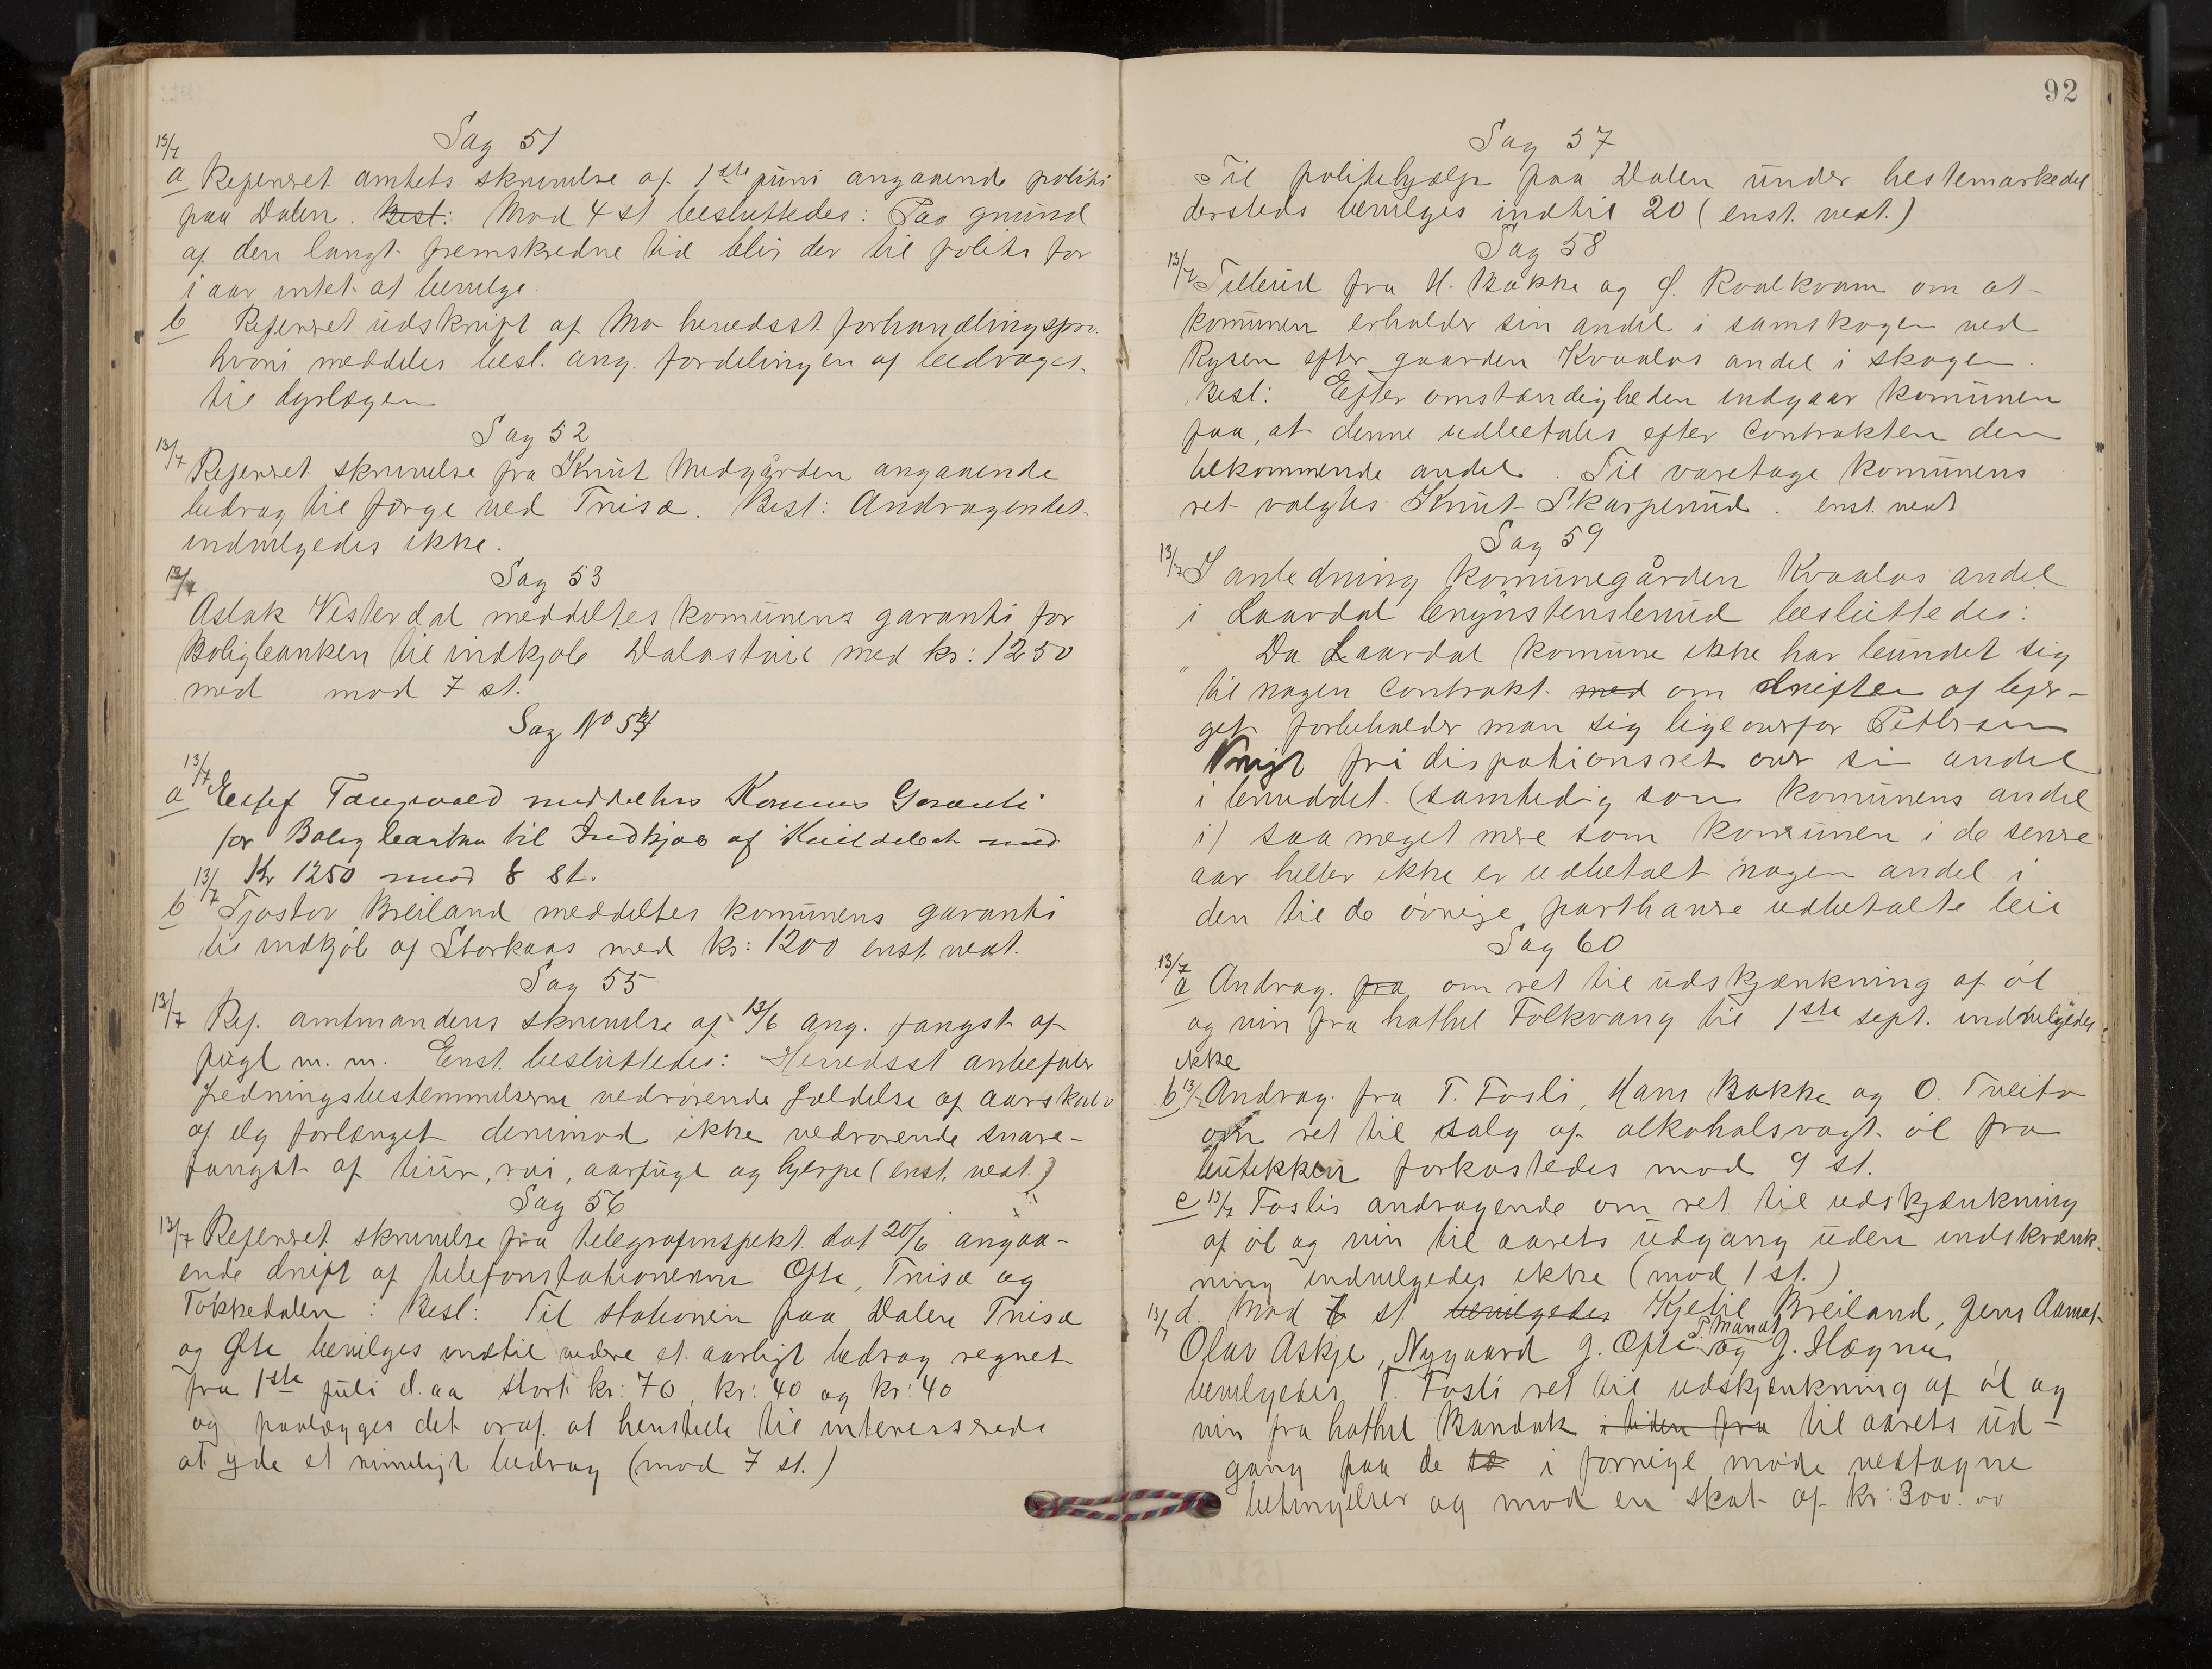 Sag 51
13/7
a Referert amtets skrivelse af 1ste juni angaaende politi
paa Dalen. Best: Mod 4 st besluttedes: Paa grund
af den langt fremskredne tid blir der til politi for
i aar intet at bevilge.
b Referert udskrift af Mo herredsst. forhandlingspro.
hvori meddeles besl. ang. fordelingen af bidraget
til dyrlægen
Sag 52
13/7 Referert skrivelse fra Knut Midgården angaaende
bidrag til færge ved Trisæ. Besl: Andragendet
indvilgedes ikke.
Sag 53
13/7
Aslak Vesterdal meddeltes komunens garanti for
Boligbanken til indkjøb Dalastøil med kr: 1250
med mod 7 st.
Sag No 54
13/7
a Tangvald meddeltes Komunens Garanti
for Boligbanken til Indkjøb af med
Kr 1250 mod 8 st.
13/7
b Tjostov Breiland meddeltes komunens garanti
til indkjöb af Storkaas med kr: 1200 enst. vedt.
Sag 55
13/7 Ref. amtmandens skrivelse af 13/6 ang. fangst af
fugl m. m. Enst. besluttedes: Herredsst anbefaler
fredningsbestemmelserne vedrörende fældelse af aarskalv
af elg forlænget derimod ikke vedrörende snare-
fangst af tiur, röi, aarfugl og hjerpe (enst. vedt.)
Sag 56
13/7 Referert skrivelse fra telegrafinspekt. dat 20/6 angaa-
ende drift af telefonstationerne Ofte, Trisæ og
Tokkedalen: Besl: Til stationen paa Dalen Trisæ
og Ofte bevilges indtil videre et aarligt bidrag regnet
fra 1ste juli d. aa stort kr: 70, kr: 40 og kr: 40
og paalægges det ordf. at henstille til interesserede
at yde et rimeligt bidrag (mod 7 st.)
92
Sag 57
Til politihjælp paa Dalen under hestemarkedet
dersteds bevilges indtil 20 (enst. vedt.)
Sag 58
13/7 Tilbud fra H. Bakke og Kvalkvam om at
komunen erholder sin andel i samskogen ved
Rysen efter gaarden Kvaalos andel i skogen.
Besl: Efter omstændigheden indgaar komunen
paa, at denne udbetales efter Contrakten den
tilkommende andel. Til varetage komunens
ret valgtes Knut Skarperud. enst. vedt
Sag 59
13/7 I anledning komunegården Kvaalos andel
i Laardal brynstensbrud besluttedes:
" Da Laardal komune ikke har bundet sig
til nogen Contrakt med om driften af bjer-
get forbeholder man sig ligeoverfor Petersen
Vrigt fri dispotionsret over sin andel
i bruddet (samtidig som komunens andel
i) saa meget mere som komunen i de senere
aar heller ikke er udbetalt nogen andel i
den til de övrige parthavere udbetalte leie
Sag 60
13/7
a Andrag. fra om ret til udskjænkning af öl
og vin fra hotbel Folkvang til 1ste sept. indvilgedes
ikke
b 13/7 Andrag. fra T. Fosli, Hans Bakke og O. Tveito
om ret til salg af alkoholsvagt öl fra
butikken forkastedes mod 9 st.
c 13/7 Foslis andragende om ret til udskjænkning
af öl og vin til aarets udgang uden indskrænk-
ning indvilgedes ikke (mod 1 st.)
13/7 d. Mod 7 st. bevilgedes Kjetil Breiland, Jens Aamot
Olav Askje, Nygaard J. Ofte T. Manat og G. Hægna
bevilgedes T. Fosli ret til udskjænkning af öl og
vin fra hothel Bandak i tiden fra til aarets ud-
gang paa de i forrige möde vedtagne
betingelser og mod en skat af kr: 300.00